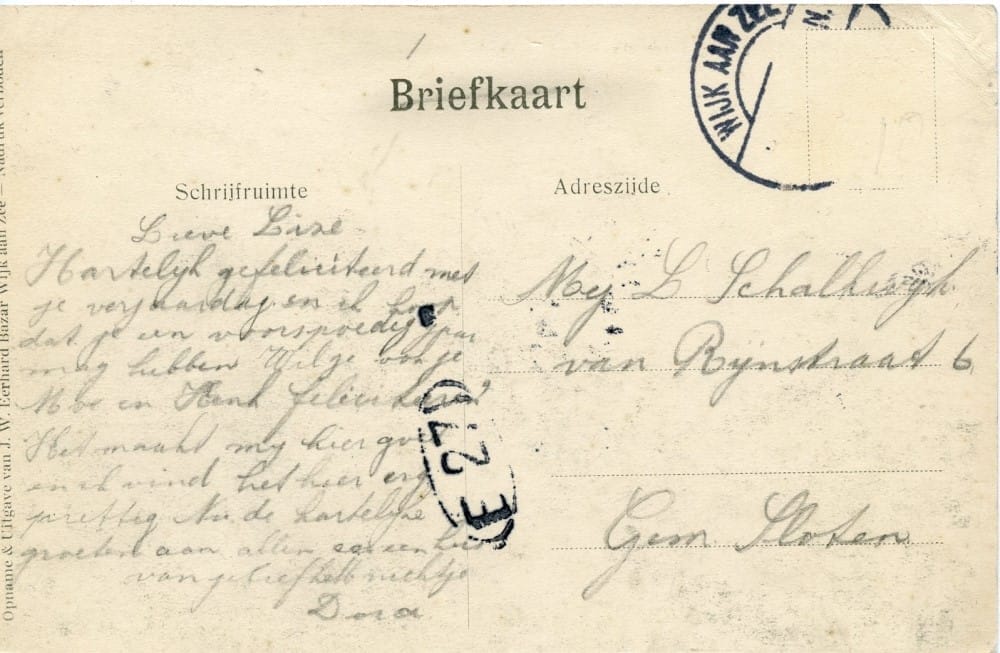 Briefkaart
WIJK AAN ZEE
N.
Schrijfruimte
Lieve Lize
Hartelijk gefeliciteerd met
je verjaardag en ik hoop
dat je een voorspoedig jaar
mag hebben Wil je ook je
Moe en Henk feliciteren?
Het maakt my hier goed
en ik vind het hier erg
prettig Nu de hartelijke
groeten aan allen en een kus
van je liefhebb nichtje
Dora
Adreszijde
Mej L Schalkwijk
van Rijnstraat 6
Gem Sloten
Opname & Uitgave van J. W. Eerhard Bazar Wijk aan Zee — Nadruk verboden